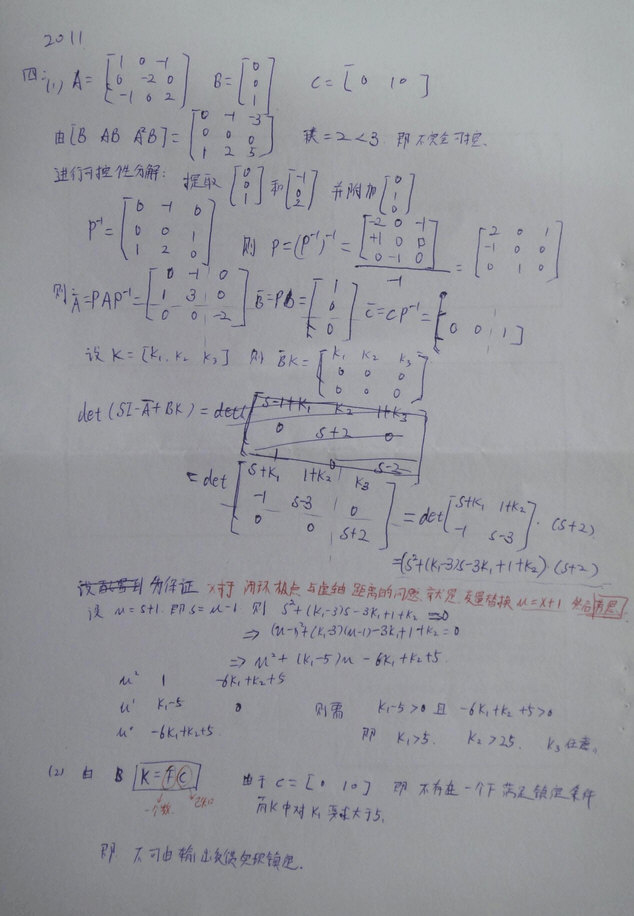 2011
四、(1) A = [1 0 -1; 0 -2 0; -1 0 2] B = [0; 0; 1] C = [0 1 0]
由[B AB A²B] = [0 -1 -3; 0 0 0; 1 2 5] 秩=2<3 即不完全可控.
进行可控性分解: 提取 [0; 0; 1] 和 [-1; 0; 2] 并附加 [0; 1; 0]
P⁻¹ = [0 -1 0; 0 0 1; 1 2 0] 则 P=(P⁻¹)⁻¹ = [-2 0 -1; +1 0 0; 0 -1 0] / -1 = [2 0 1; -1 0 0; 0 1 0]
则 Ā=PAP⁻¹= [0 -1 0; 1 3 0; 0 0 -2] B̄=PB= [1; 0; 0] C̄=CP⁻¹= [0 0 1]
设 K = [K₁ K₂ K₃] 则 B̄K = [K₁ K₂ K₃; 0 0 0; 0 0 0]
det(SI-Ā+BK) = det [S-1+K₁ K₂ 1+K₃; 0 S+2 0; 1 0 S-2]
= det [S+K₁ 1+K₂ K₃; -1 S-3 0; 0 0 S+2] = det [S+K₁ 1+K₂; -1 S-3] · (S+2)
= (S²+(K₁-3)S-3K₁+1+K₂)·(S+2)
为保证 x对于闭环极点与虚轴距离的问题 就是变量替换 u=x+1 然后
设 u=S+1. 即S=u-1 则 S²+(K₁-3)S-3K₁+1+K₂ =0
⇒ (u-1)²+(K₁-3)(u-1)-3K₁+1+K₂=0
⇒ u²+(K₁-5)u-6K₁+K₂+5.
u² 1 -6K₁+K₂+5
u¹ K₁-5 0 则需 K₁-5>0 且 -6K₁+K₂+5>0
u⁰ -6K₁+K₂+5. 即 K₁>5. K₂>25. K₃任意.
(2) 由 B K=FC 由于 C=[0 1 0] 即 不存在一个F满足镇定条件
一个数 已知 而K中对K₁要求大于5.
即 不可由输出反馈实现镇定.